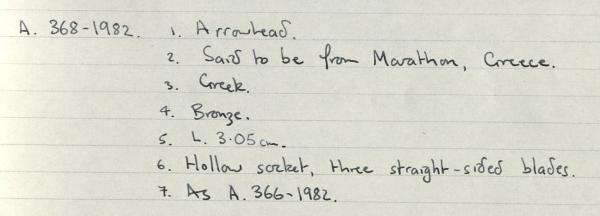 A. 368-1982. 1. Arrowhead.
2. Said to be from Marathon, Greece.
3. Greek.
4. Bronze.
5. L. 3.05cm.
6. Hollow socket, three straight-sided blades.
7. As A. 366-1982.